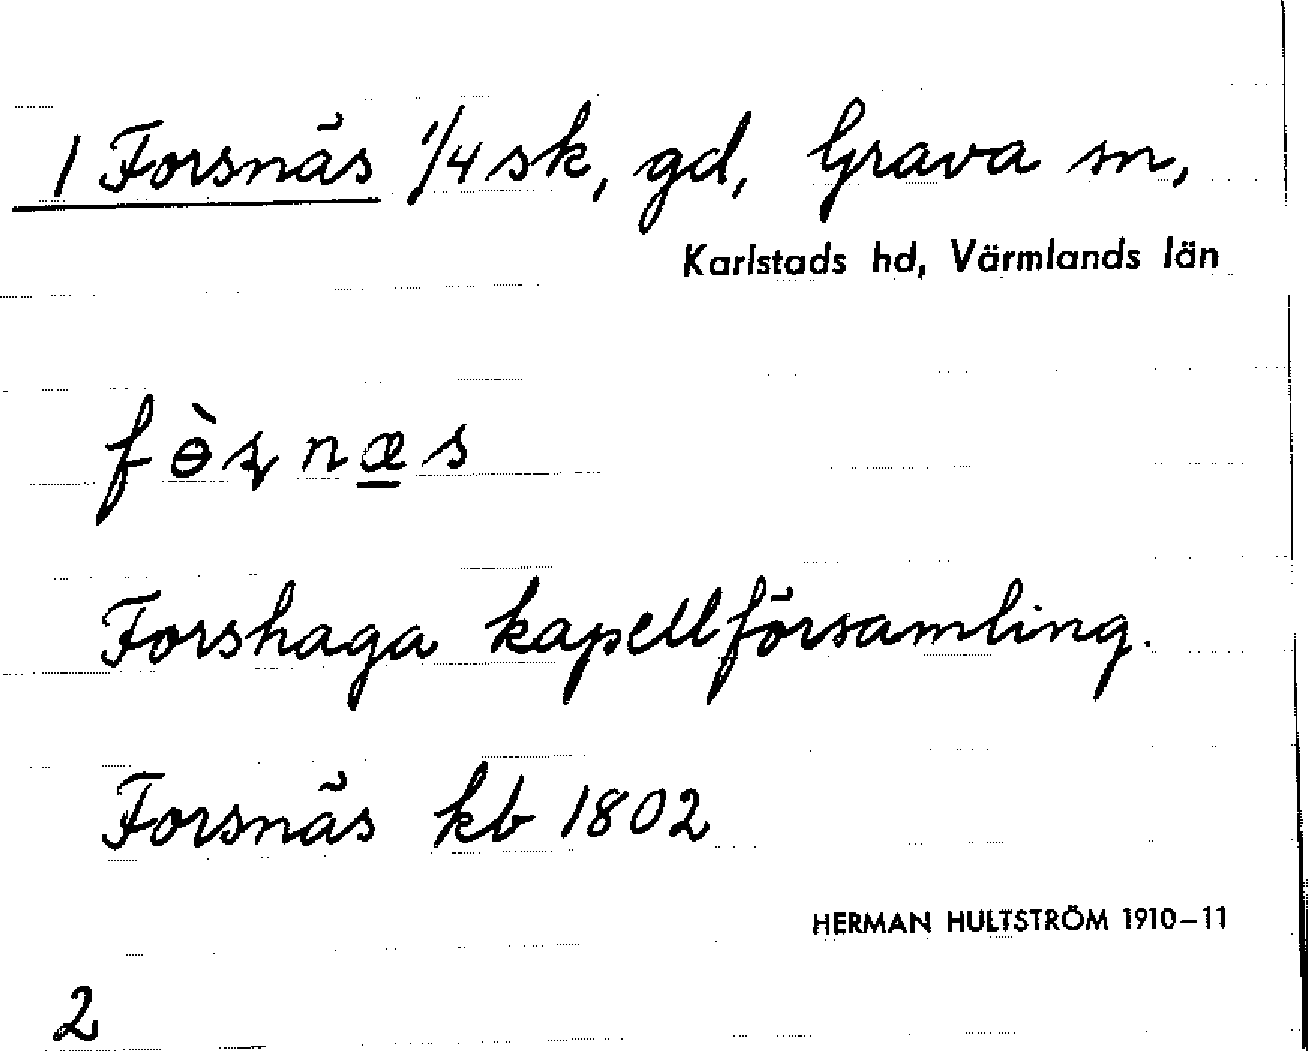 1 Forsnäs 1/4 sk, gd, Grava sn,
Karlstads hd, Värmlands län
fɵ̀ʂnæ̱s
Forshaga kapellförsamling.
Forsnäs kb 1802
HERMAN HULTSTRÖM 1910–11
2